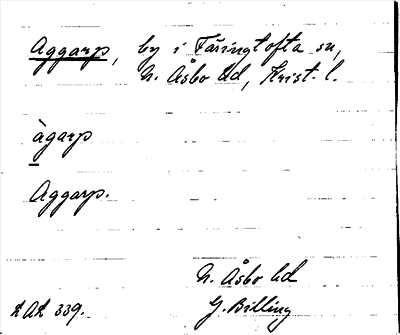 Aggarp, by i Färingtofta sn,
N. Åsbo hd, Krist. l.
àgarp
Aggarp.
N. Åsbo hd
LAL 339.
G. Billing